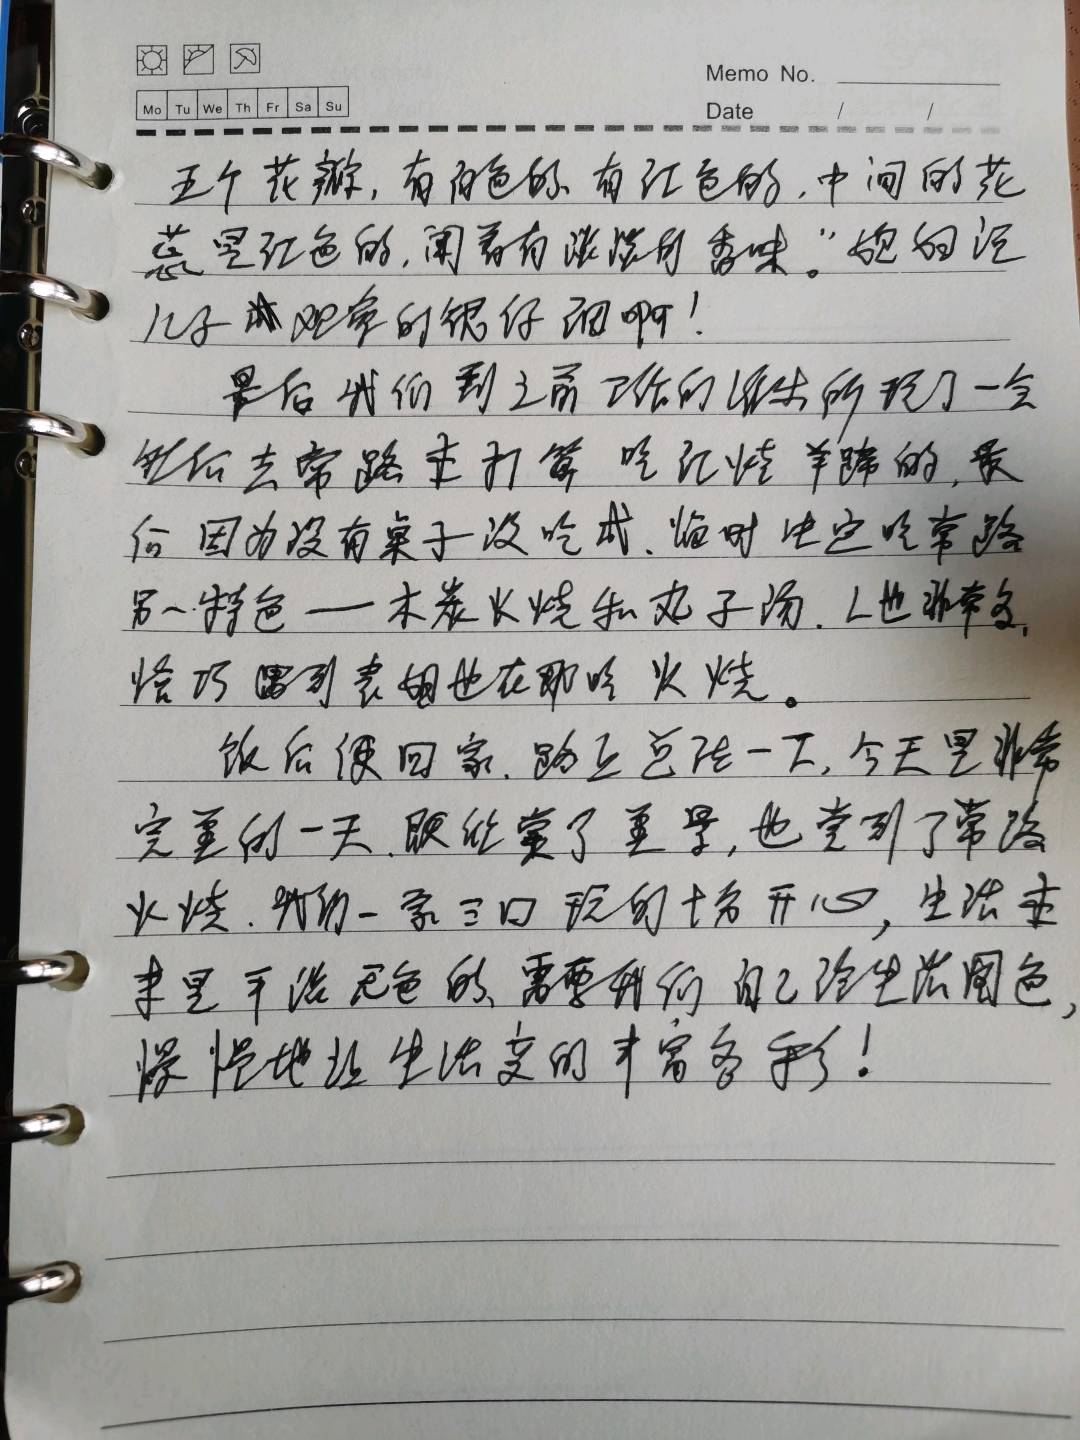 Memo No.
Mo Tu We Th Fr Sa Su
Date / /
五个花瓣,有白色的、有红色的,中间的花
蕊是红色的,闻着有淡淡的香味。"的回
儿子观察的很仔细啊!
最后我们到之前工作的派出所玩了一会
然后去常路本打算吃红烧羊蹄的,最
后因为没有桌子没吃成、临时决定吃常路
另一特色——木炭火烧和丸子汤.人也非常多,
恰巧遇到表姐也在那吃火烧。
饭后便回家.路上总结一下,今天是非常
完美的一天.既欣赏了美景,也尝到了常路
火烧.我们一家三口玩的十分开心,生活本
来是平淡无色的、需要我们自己给生活图色,
慢慢地让生活变的丰富多彩!